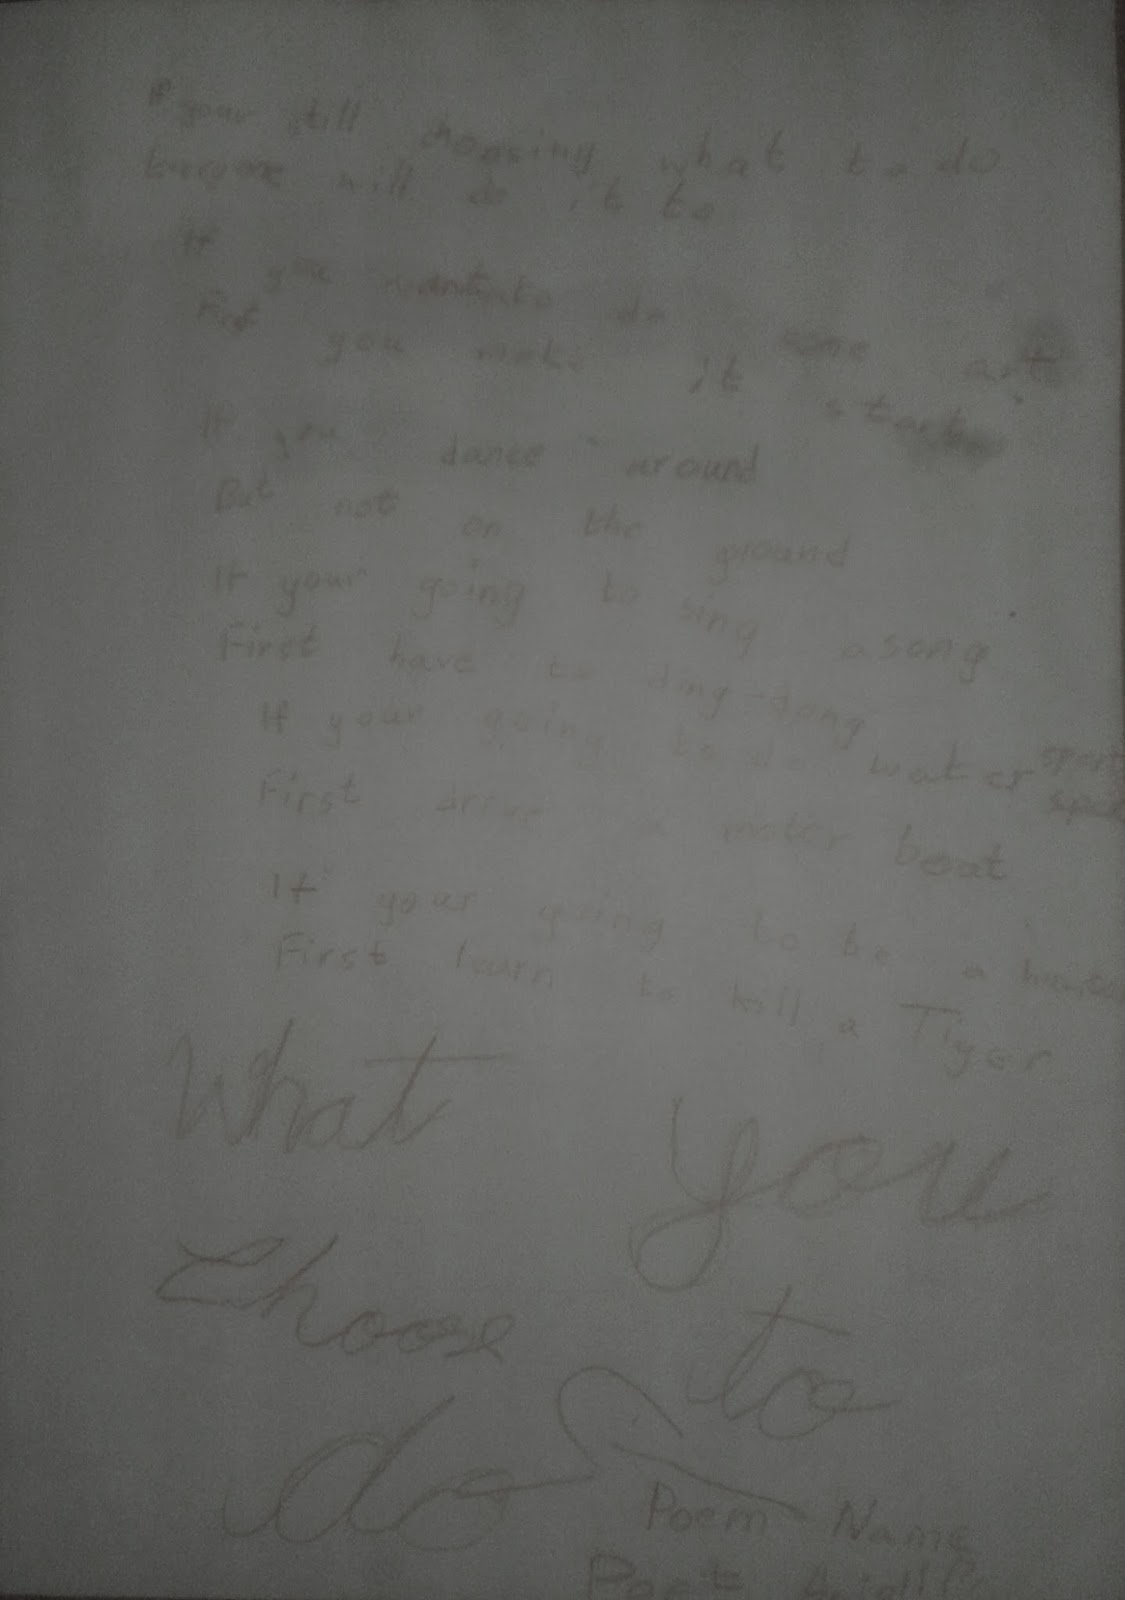 If your still choosing what to do
will do it to
If you want to do some art
First you make it start
If you dance around
But not on the ground
If your going to sing a song
First have to ding-dong
If your going to do water sport
First drive a motor boat
If your going to be a hunter
First learn to kill a Tiger
What you
Choose to
do
Poem Name
Poet